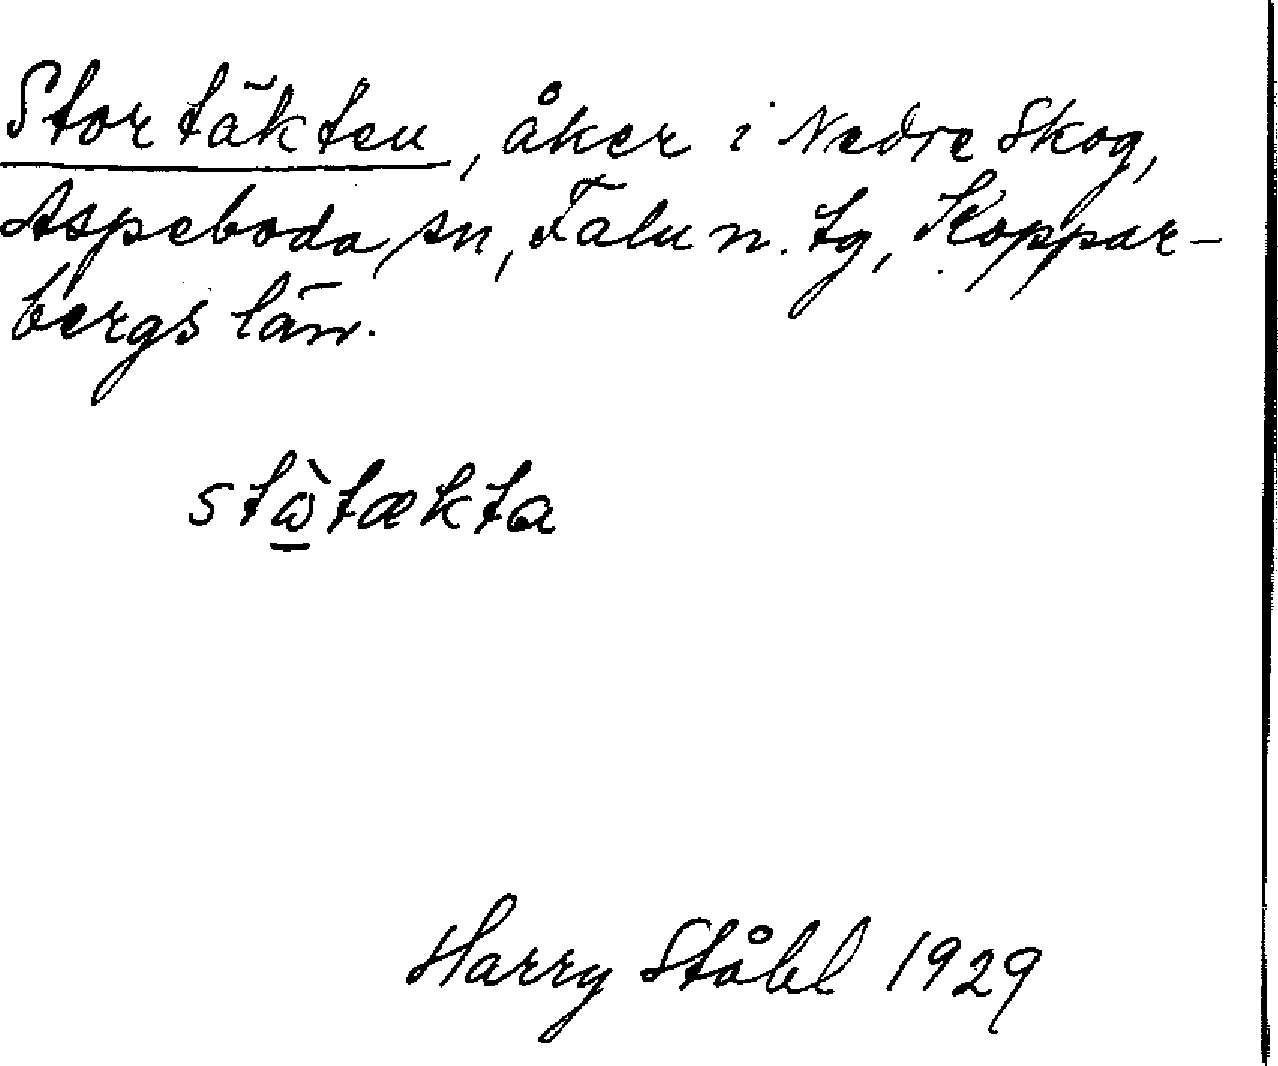 Stortäkten, åker i Nedre Skog,
Aspeboda sn, Falu n. tg, Koppar-
bergs län.
stὼ̱tækta
Harry Ståhl 1929